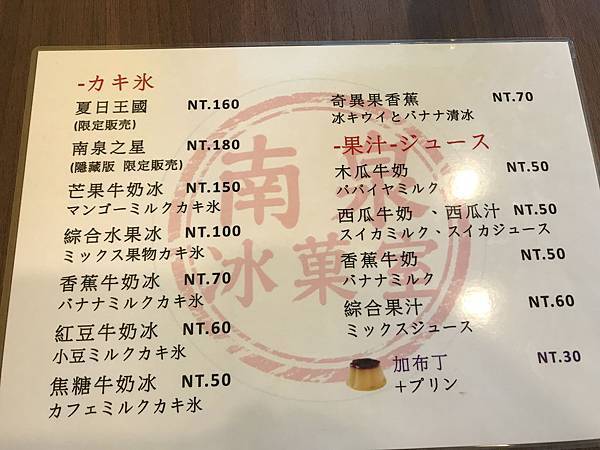 -カキ氷
夏日王國 NT.160
(限定販売)
南泉之星 NT.180
(隱藏版 限定販売)
芒果牛奶冰 NT.150
マンゴーミルクカキ氷
綜合水果冰 NT.100
ミックス果物カキ氷
香蕉牛奶冰 NT.70
バナナミルクカキ氷
紅豆牛奶冰 NT.60
小豆ミルクカキ氷
焦糖牛奶冰 NT.50
カフェミルクカキ氷
奇異果香蕉 NT.70
冰キウイとバナナ清冰
-果汁-ジュース
木瓜牛奶 NT.50
パパイヤミルク
西瓜牛奶、西瓜汁 NT.50
スイカミルク、スイカジュース
香蕉牛奶 NT.50
バナナミルク
綜合果汁 NT.60
ミックスジュース
加布丁 NT.30
+プリン
南泉
冰菓室